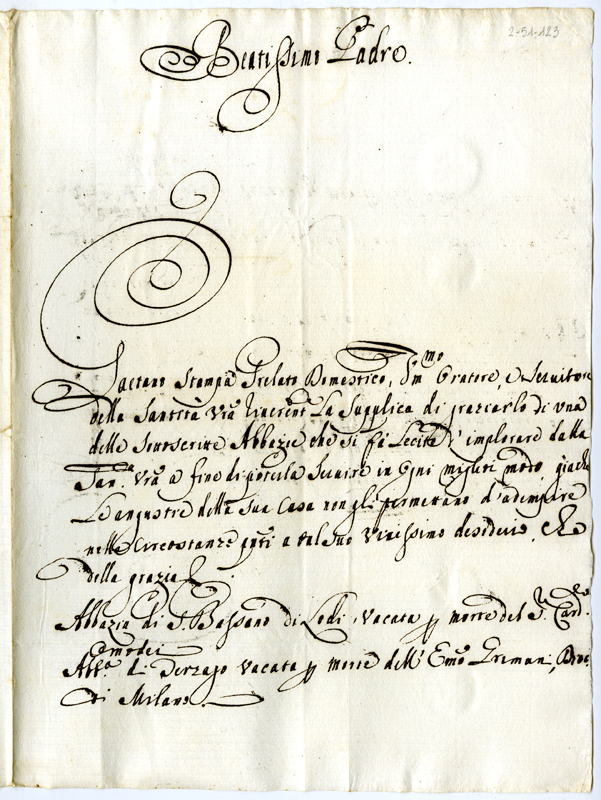 2-51-123
Beatissimo Padre.
Gaetano Stampa Prelato Domestico, Um.mo Oratore, e Servitore
della Santità Vra riverent. La Supplica di graziarlo di una
delle Sottoscritte Abbazie che si fà Lecito d'implorare dalla
San.tà Vra a fine di poterla Servire in Ogni miglior modo, giache
Le angustie della Sua Casa non gli permettano d'adempire
nelle Circostanze pnti a tal suo Vivissimo desiderio. Che
della grazia
Abbazia di S. Bassano di Lodi, Vacata p morte del S.r Card.
Omodei
Abb.a di Vacata p morte dell' Emo Grimani,
di Milano.